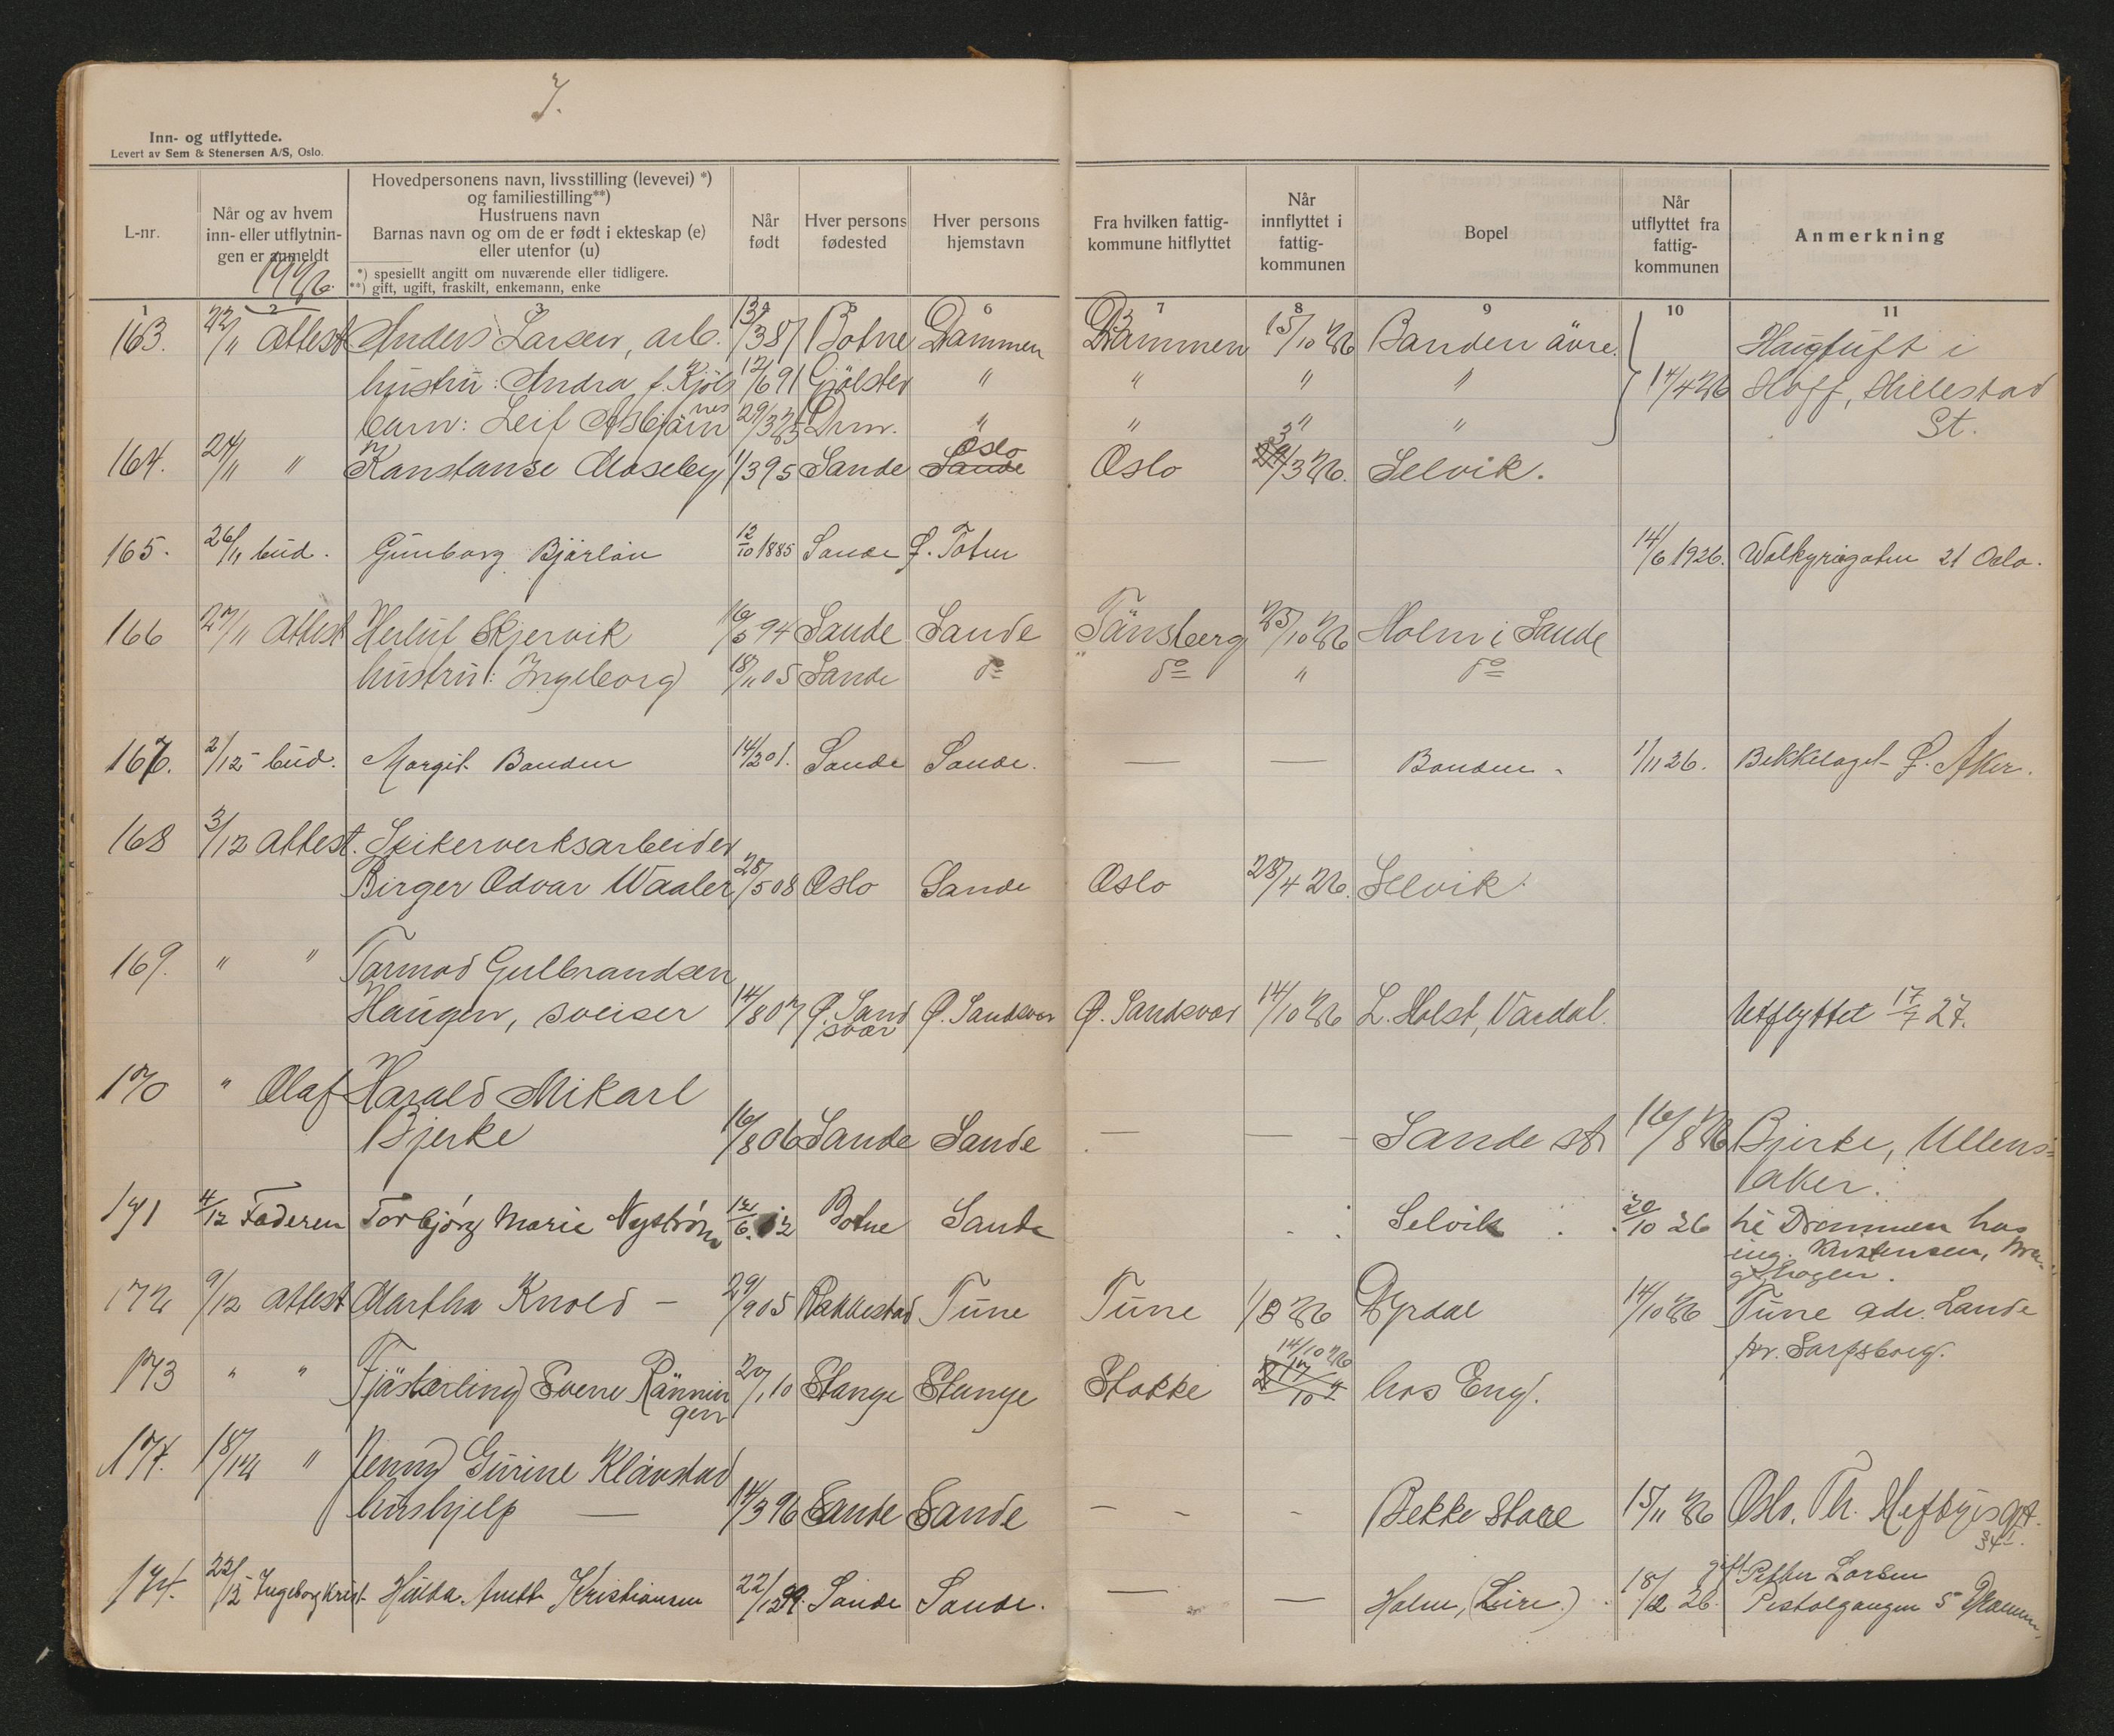 7.
Inn- og utflyttede.
Levert av Sem & Stenersen A/S, Oslo.
L-nr.
Når og av hvem inn- eller utflytnin- gen er anmeldt
1926.
Hovedpersonens navn, livsstilling (levevei) *) og familiestilling**)
Hustruens navn
Barnas navn og om de er født i ekteskap (e) eller utenfor (u)
*) spesiellt angitt om nuværende eller tidligere.
**) gift, ugift, fraskilt, enkemann, enke
Når født
Hver persons fødested
Hver persons hjemstavn
Fra hvilken fattig- kommune hitflyttet
Når innflyttet i fattig- kommunen
Bopel
Når utflyttet fra fattig- kommunen
Anmerkning
1 2 3 4 5 6 7 8 9 10 11
163. 22/11 attest Anders Larsen, arb. 13/3 87 Botne Drammen Drammen 15/10 26 Banden övre. Haugtuft i
hustru: Andra f. Kjöls 12/6 91 Gjölster " " " " 14/4 26 Hoff, Hillestad
nes
barn: Leif Asbjörn 29/3 25 Drm. " " " " St.
Oslo 3
164. 24/11 " Konstanse Moseby 1/3 95 Sande Sande Oslo 29/3 26. Selvik.
165. 26/11 bud. Gunborg Bjørløw 12/10 1885 Sande Ø. Toten 14/6 1926. Walkyriegaten 21 Oslo.
166 27/11 attest Herluf Skjervik 16/5 94 Sande Sande Tönsberg 25/10 26 Holm i Sande
hustru: Ingeborg 18/11 05 Sande do do " do
167. 2/12 - bud. Margit Banden 14/3 01. Sande Sande. — — Banden - 1/11 26. Bekkelaget Ø. Aker.
168 3/12 attest. Spikerverksarbeider
Birger Odvar Waaler 28/5 08 Oslo Sande Oslo 28/4 26. Selvik
169. " " Tormod Gulbrandsen
Haugen, sveiser 14/8 07 Ø. Sand svær Ø. Sandsvær Ø. Sandsvær 14/10 26 L. Holst, Vardal. Utflyttet 17/7 27.
170 " Olaf Harald Mikarl
Bjerke 16/8 06 Sande Sande — — - Sande st. 16/8 26 Bjerke, Ullens=
aker.
171 4/12 Faderen Torbjörg Marie Nyström 12/6. 12 Botne Sande Selvik 20/10 26 til Drammen hos
ing. Kristensen, Bra-
gehagen.
172 9/12 attest Martha Knold - 29/9 05 Rakkestad Tune Tune 1/3 26 Dyrdal 14/10 26 Tune adr. Lande
pr. Sarpsborg.
14/10 26
173 " " Fjösterling Sverre Rönnin 27/1 10 Stange Stange Stokke hos Eng.
gen
174. 18/12 " Jenny Gurine Kløvstad
hushjelp — 14/3 96 Sande Sande - - - Bekke Store 15/11 26 Oslo, Th. Heftyes gt.
34 I.
gift Petter Larsen
174. 22/12 - Ingeborg Krist. Hilda. Anett Kristiansen 22/12 99. Sande Sande. — — Holm, (Lere.) 18/12 26. Pistolgangen 5 Dramm.